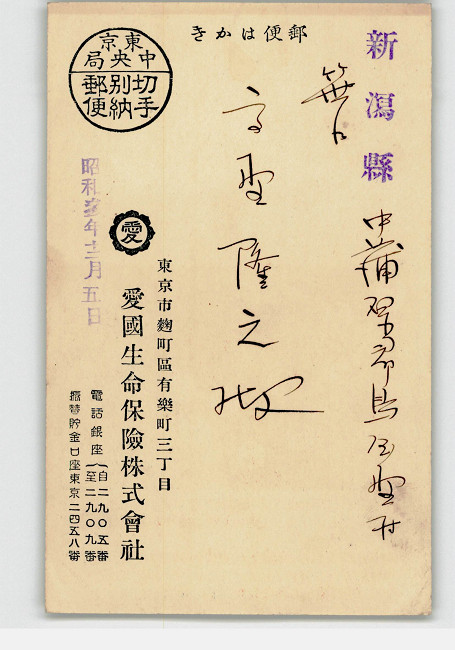 郵便はかき
新潟縣
中蒲原郡鳥屋野村
笹口
高野隆之殿
東京中央局
切手別納郵便
愛
東京市麴町區有樂町三丁目
愛國生命保險株式會社
電話銀座(自二九〇五番
(至二九〇九番
振替貯金口座東京二四五八番
昭和年十二月五日